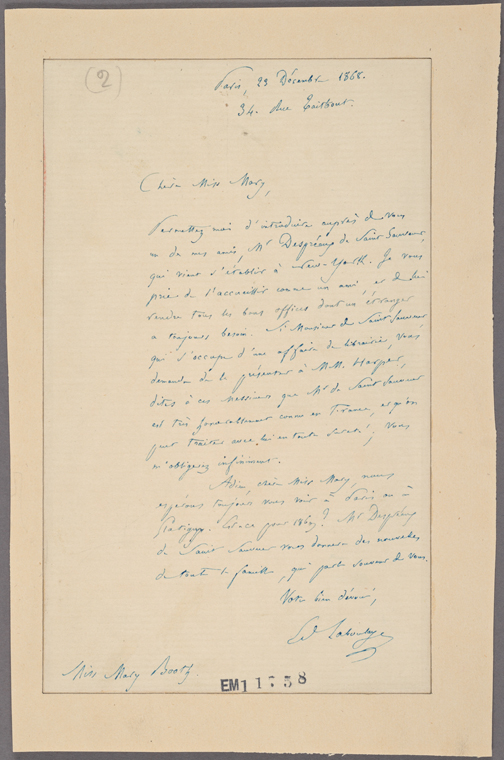 (2)
Paris, 23 Décembre 1868.
34. Rue Taitbout.
Chère Miss Mary,
Permettez moi d'introduire auprès de vous
un de mes amis, Mr Despréaux de Saint Sauveur,
qui vient s'établir à New-York. Je vous
prie de l'accueillir comme un ami, et de lui
rendre tous les bons offices dont un étranger
a toujours besoin. Si Monsieur de Saint Sauveur
qui s'occupe d'une affaire de librairie, vous
demandait de le présenter à MM. Harper,
dites à ces Messieurs que Mr de Saint Sauveur
est très favorablement connu en France, et qu'on
peut traiter avec lui en toute sureté; vous
m'obligerez infiniment.
Adieu chère Miss Mary, nous
espérons toujours vous voir à Paris ou à
Glatigny. Est-ce pour 1869? Mr Despréaux
de Saint Sauveur vous donnera des nouvelles
de toute la famille, qui parle souvent de vous.
Votre bien dévoué,
Ed Laboulaye
Miss Mary Booth.
EM11758